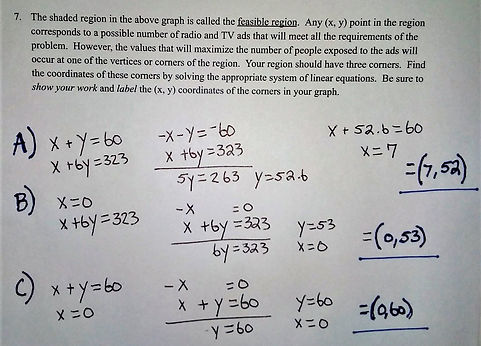 7. The shaded region in the above graph is called the feasible region. Any (x, y) point in the region
corresponds to a possible number of radio and TV ads that will meet all the requirements of the
problem. However, the values that will maximize the number of people exposed to the ads will
occur at one of the vertices or corners of the region. Your region should have three corners. Find
the coordinates of these corners by solving the appropriate system of linear equations. Be sure to
show your work and label the (x, y) coordinates of the corners in your graph.
A) x + y = 60 -x - y = -60 x + 52.6 = 60
x + 6y = 323 x + 6y = 323 x = 7
5y = 263 y = 52.6 = (7, 52)
B) x = 0 -x = 0
x + 6y = 323 x + 6y = 323 y = 53 = (0, 53)
6y = 323 x = 0
C) x + y = 60 -x = 0
x = 0 x + y = 60 y = 60 = (0, 60)
y = 60 x = 0